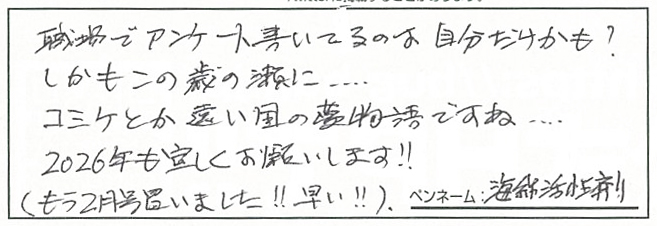 職場でアンケート書いてるのは自分だけかも?
しかもこの歳の瀬に....
コミケとか遠い国の夢物語ですね....
2026年も宜しくお願いします!!
(もう2月号買いました!!早い!!).
ペンネーム:海綿活性剤